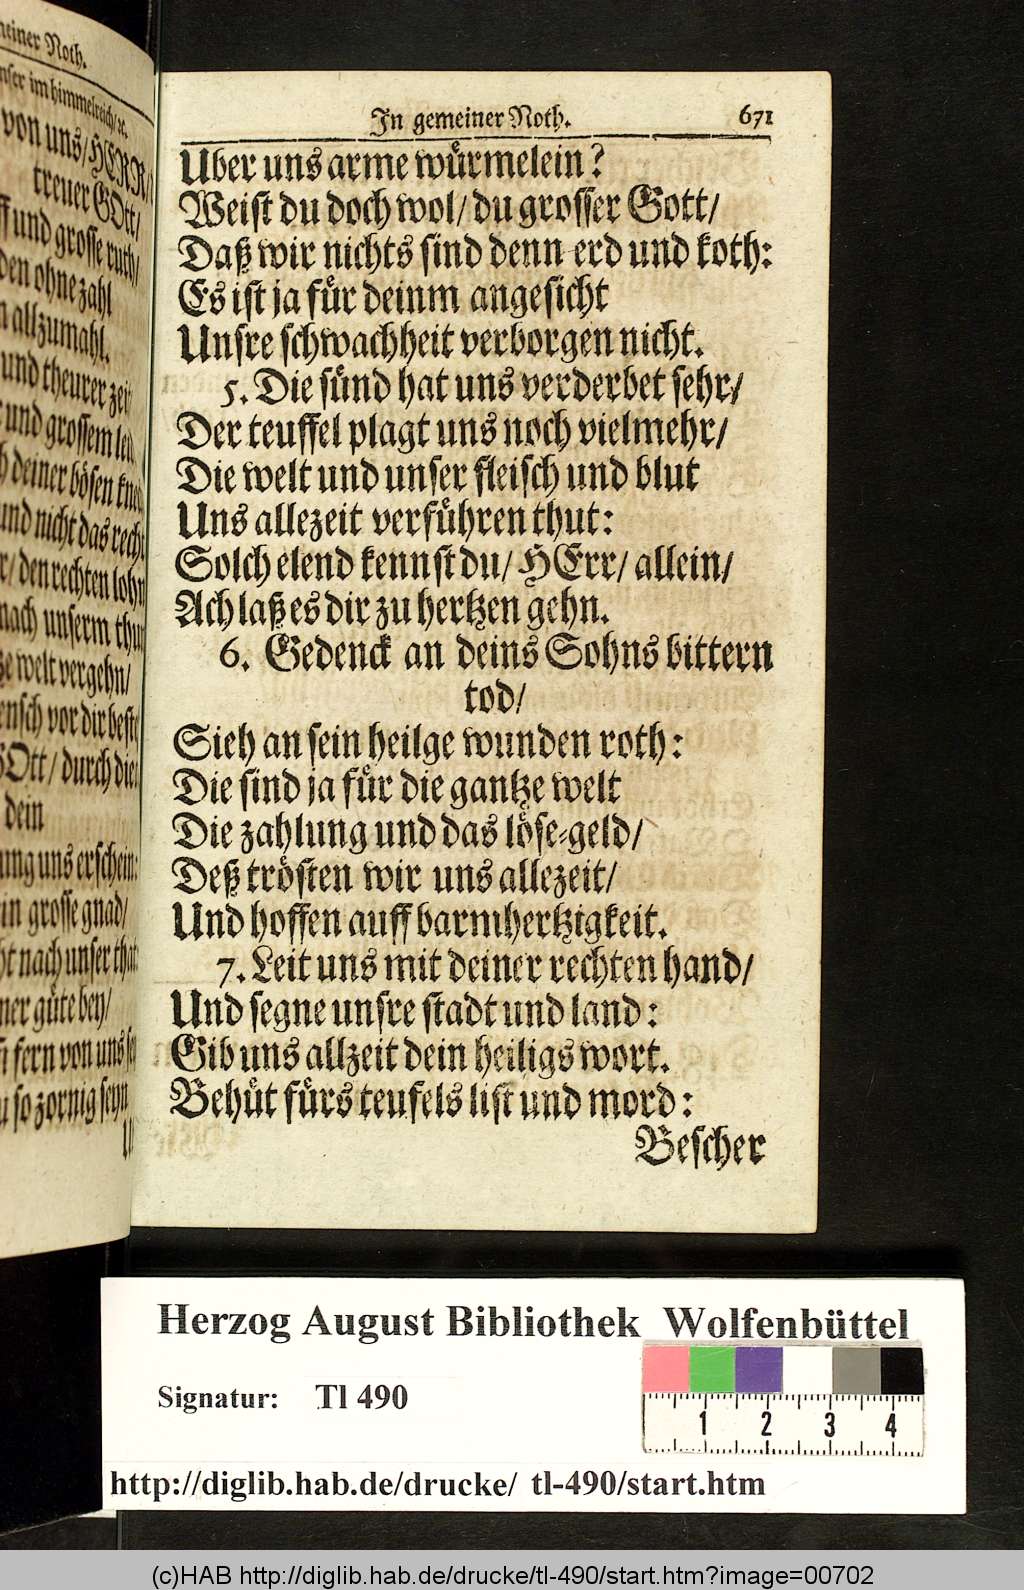 meiner Noth.
unser im himmelreich/ ꝛc.
von uns/ HERR/
treuer GOtt/
und grosse ruth/
den ohne zahl
allzumahl.
und theurer zeit
und grossem leid
deiner bösen
und nicht das recht
den rechten lohn
nach unserm thun
welt vergehn/
vor dir
GOtt/ durch die
dein
uns erschein:
grosse gnad/
nach unser that
güte bey/
fern von uns sey
so zornig seyn
In gemeiner Noth. 671
Uber uns arme würmelein?
Weist du doch wol/ du grosser Gott/
Daß wir nichts sind denn erd und koth:
Es ist ja für deinm angesicht
Unsre schwachheit verborgen nicht.
5. Die sünd hat uns verderbet sehr/
Der teuffel plagt uns noch vielmehr/
Die welt und unser fleisch und blut
Uns allezeit verführen thut:
Solch elend kennst du/ HErr/ allein/
Ach laß es dir zu hertzen gehn.
6. Gedenck an deins Sohns bittern
tod/
Sieh an sein heilge wunden roth:
Die sind ja für die gantze welt
Die zahlung und das löse-geld/
Deß trösten wir uns allezeit/
Und hoffen auff barmhertzigkeit.
7. Leit uns mit deiner rechten hand/
Und segne unsre stadt und land:
Gib uns allzeit dein heiligs wort.
Behüt fürs teufels list und mord:
Bescher
Herzog August Bibliothek Wolfenbüttel
Signatur: Tl 490
1 2 3 4
http://diglib.hab.de/drucke/ tl-490/start.htm
(c)HAB http://diglib.hab.de/drucke/tl-490/start.htm?image=00702